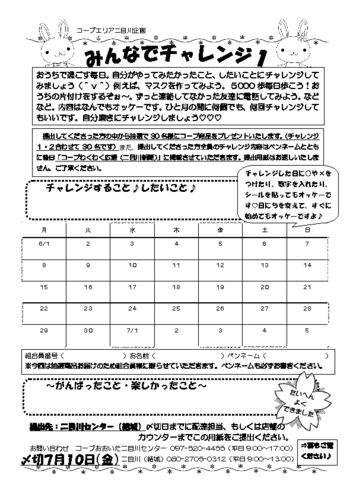 コープエリア二目川企画
みんなでチャレンジ1
おうちで過ごす毎日。自分がやってみたかったこと、したいことにチャレンジして
みましょう(＾∨＾)例えば、マスクを作ってみよう。5000歩毎日歩こう！お
うちの片付けをするぞぉ～。ずっと連絡してなかった友達に電話してみよう。など
など。内容はなんでもオッケーです。ひと月の間に何個でも、何回チャレンジして
もいいです。自分磨きにチャレンジしましょう♡♡♡
提出してくださった方の中から抽選で30名様にコープ商品をプレゼントいたします。(チャレンジ
1・2合わせて30名です)また、提出してくださった方全員のチャレンジ内容はペンネームととも
に後日「コープわくわく広場(二目川新聞)」に掲載させていただきます。提出用紙はお返しいたしま
せん。ご了承ください。
チャレンジすること♪したいこと♪
チャレンジした日に♡や×を
つけたり、数字を入れたり、
シールを貼ってもオッケーで
す♡日にちを変えて、すぐに
始めてもオッケーですよ♪
月 火 水 木 金 土 日
6/1 2 3 4 5 6 7
8 9 10 11 12 13 14
15 16 17 18 19 20 21
22 23 24 25 26 27 28
29 30 7/1 2 3 4 5
組合員番号( )お名前( )ペンネーム( )
※今回は抽選商品お届けのため組合員様に限らせていただきます。ペンネームも必ずお書きください。
～がんばったこと・楽しかったこと～
たいへん
よく
できました
提出先：二目川センター(結城)〆切日までに配達担当、もしくは店舗の
カウンターまでこの用紙をご提出ください。
お問い合わせ コープおおいた二目川センター 097-520-4456(平日9:00～17:00)
二目川(結城) 080-2705-0312(平日9:00～13:00)
〆切7月10日(金)
⇒裏もご覧
ください♪